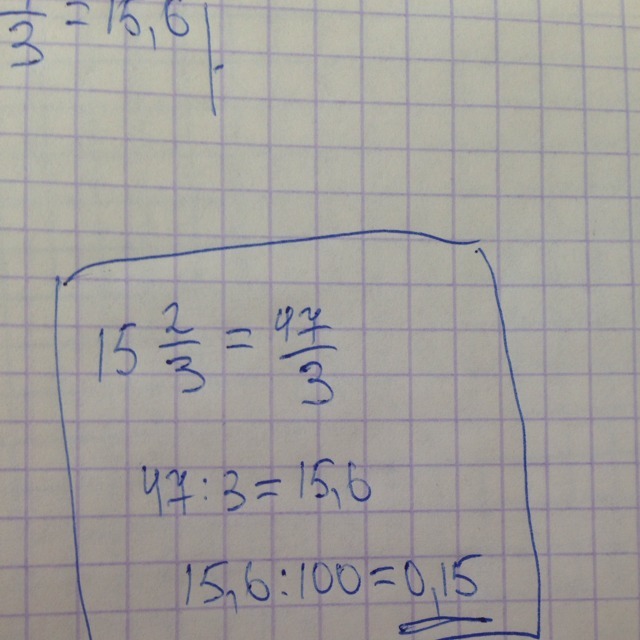 /3 = 15,6
15 2/3 = 47/3
47 : 3 = 15,6
15,6 : 100 = 0,15